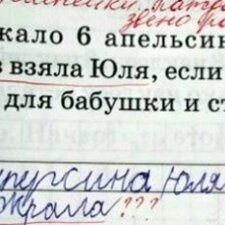 звено
жало 6 апельсин
в взяла Юля, если
для бабушки и с
пурсина Юля
окрала ???